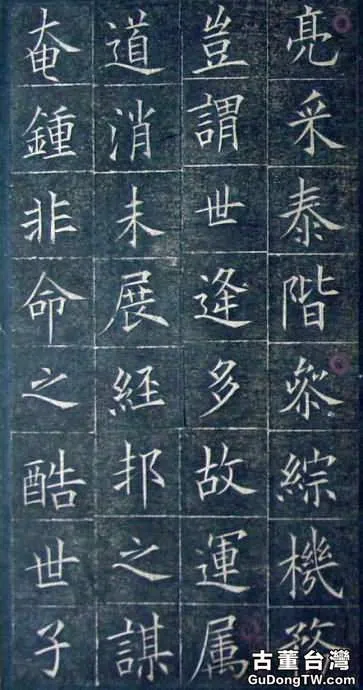 亮采泰階叅綜機務
豈謂世逄多故運属
道消未展經邦之謀
奄鍾非命之酷世子
古董台灣
GuDongTW.com